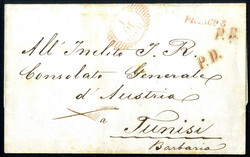 FRANCO
P.P.
P.D.
All' Inclito I. R.
Consolato Generale
d'Austria
a
Tunisi
Barbaria